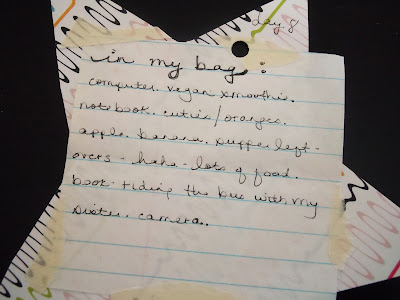 day 8
in my bag:
computer. vegan smoothie.
notebook. cuties/oranges.
apple. banana. supper left-
overs - haha - lots of food.
book. riding the bus with my
sister. camera.